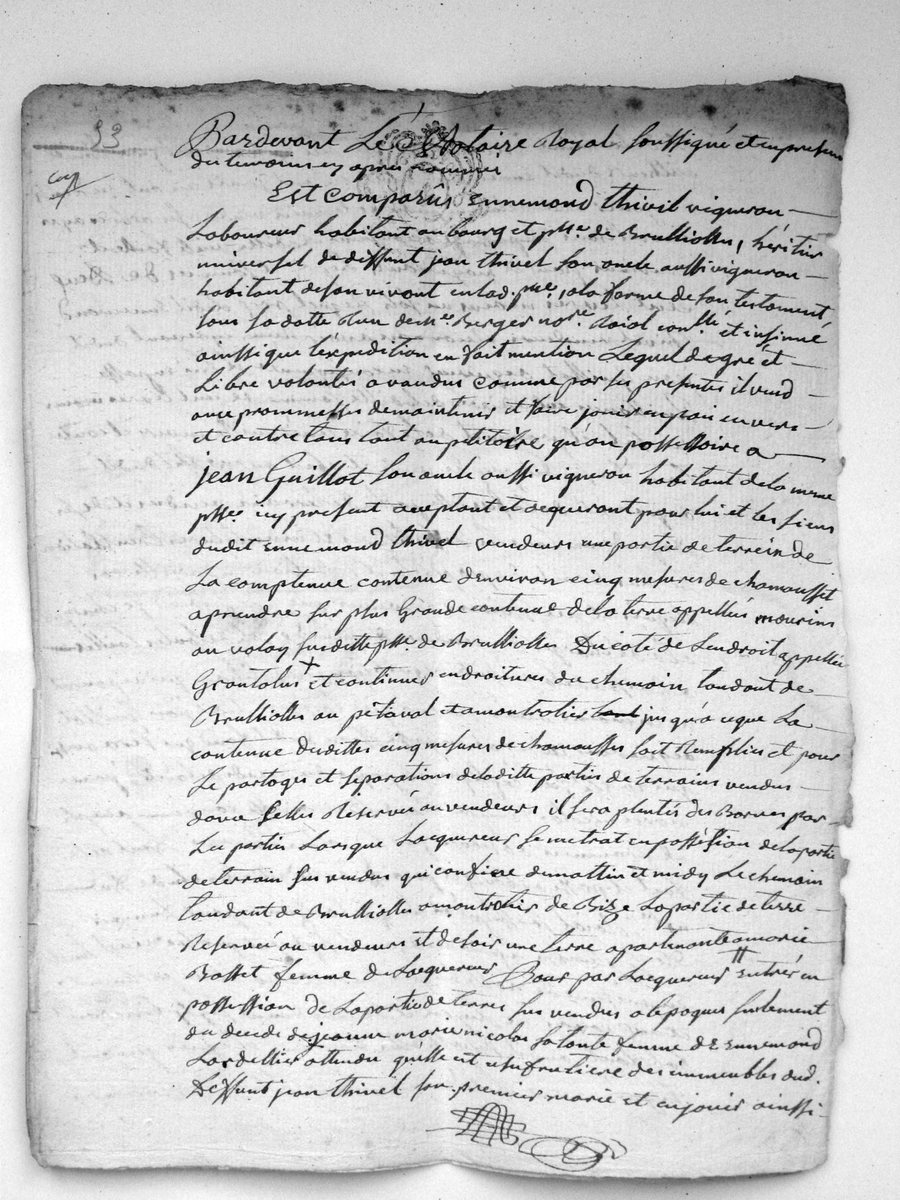 53
Pardevant Le Notaire Royal soussigné et en presence
du temoins cy apres nommés
Est comparûs Ennemond thivel vigneron
Laboureur habitant au bourg et psse. de Brulliolles, héritier
universel de deffunt jean thivel son oncle aussi vigneron
habitant de son vivant en lad. psse. a la forme de son testament
sous sa datte Reçu de Me Berger nore. Roial et insinué
ainssi que L'éxpedition en fait mention Lequel de gré et
Libre volontés a vandus comme par ses presentes il vend
avec prommesses de maintenir et faire jouir en paix envers
et contre tous tant au petitoire qu'au possessoire a
jean Guillot son oncle aussi vigneron habitant de la meme
psse. icy present acceptant et acquerant pour lui et les siens
dudit Ennemond thivel vendeurs une partie de terrein de
La comptenue contenue d'environ cinq mesures de chamousset
a prendre sur plus Grande contenue de la terre appellés mourins
au volay susditte psse. de Brulliolles Du coté de Lendroit appellée
Grantolus et continuer en droitures du chemain tandant de
Brulliolles au pétaval et a montrotier jusqu'a ce que La
contenue desdittes cinq mesures de chamousset soit Remplies et pour
Le partages et separations de laditte partie de terrains vendus
davec celles Reservée au vendeurs il sera plentés des Bornes par
Les parties Lorsque Lacquereur se metrat en possession de la partie
de terrain sus vendus qui confine de mattin et midy Le chemain
tandant de Brulliolles a montrotier de Bize La partie de terre
Reservée au vendeurs et de soir une terre apartenante a marie
Basset femme de Lacquereur Pour par Lacquereur entrér en
possession de La partie de terres sus vendus a lepoques seulement
du decede de jeanne marie nicolas sa tante femme de Ennemond
Lardellier attendu qu'elle est usufruitiere des immeubles dud.
deffunt jean thivel son premier marie et en jouir ainssi